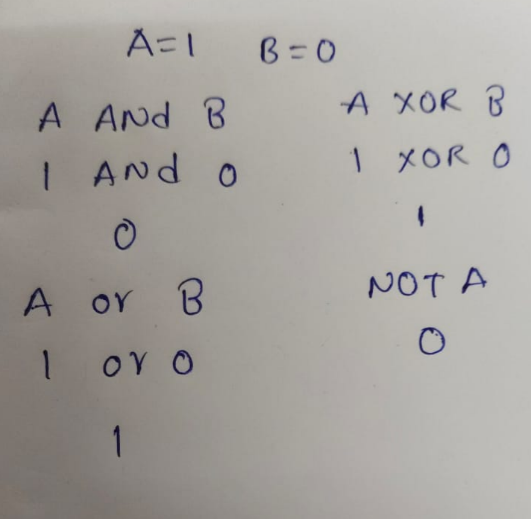 A=1 B=0
A ANd B
1 ANd 0
0
A or B
1 or 0
1
A XOR B
1 XOR 0
1
NOT A
0